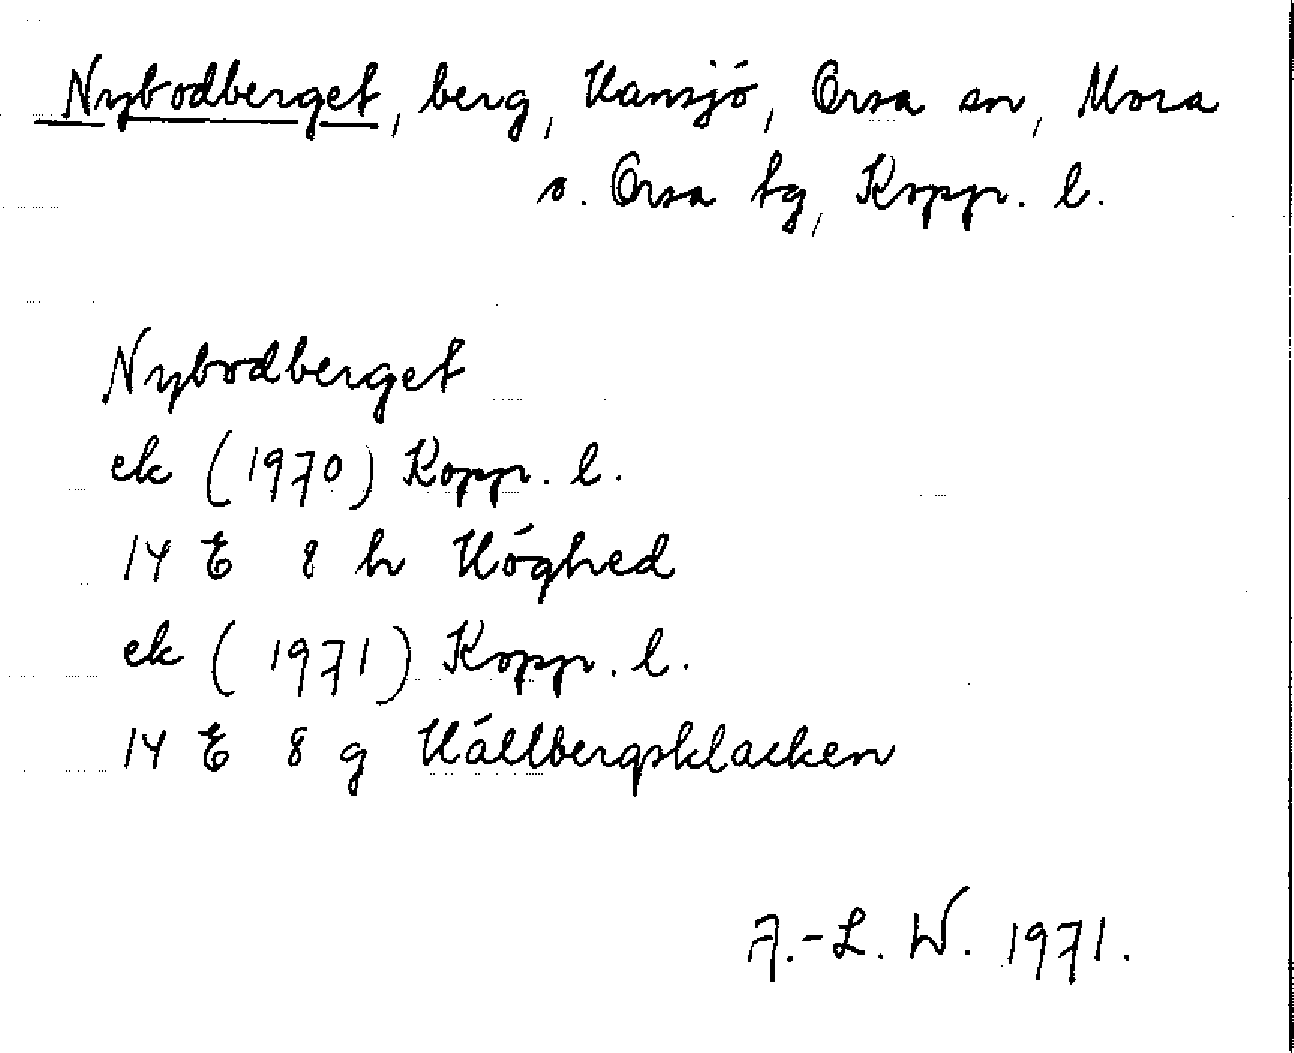 Nybodberget, berg, Hansjö, Orsa sn, Mora
o. Orsa tg, Kopp. l.
Nybodberget
ek (1970) Kopp. l.
14 E 8 h Höghed
ek (1971) Kopp. l.
14 E 8 g Hållbergsklacken
A.-L. W. 1971.